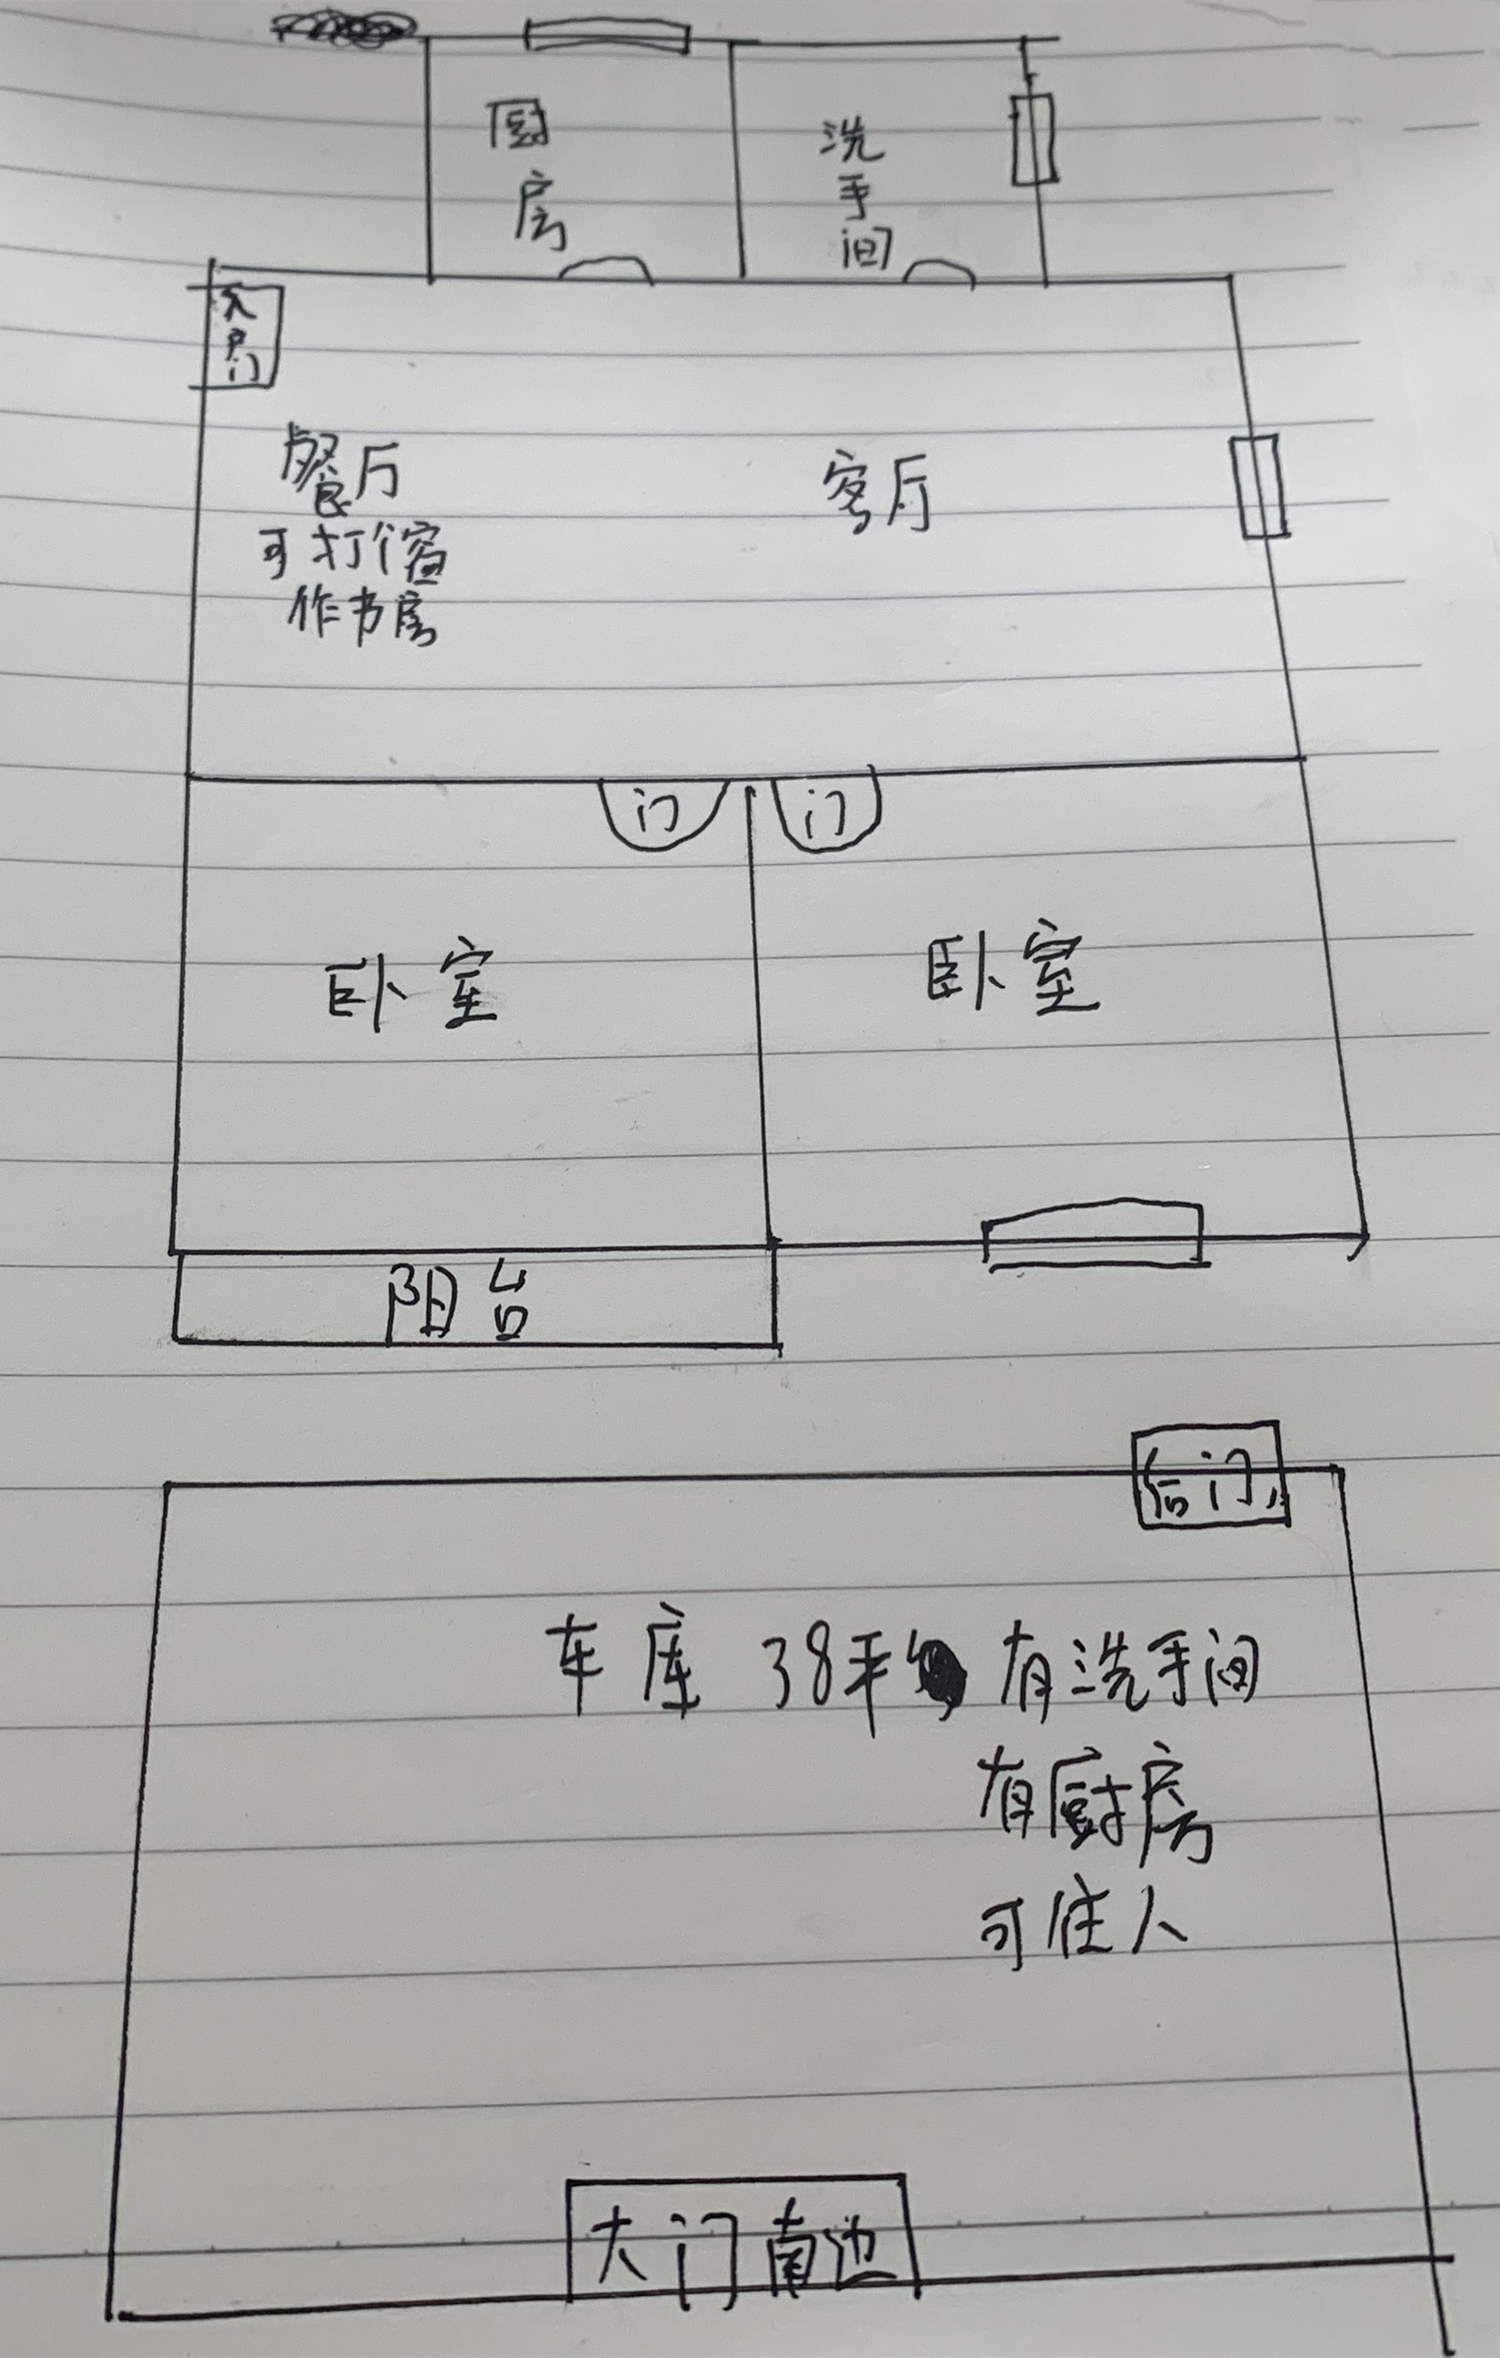 厨房
洗手间
入户门
餐厅
可打个窗
作书房
客厅
门
门
卧室
卧室
阳台
后门
车库 38平 有洗手间
有厨房
可住人
大门南边